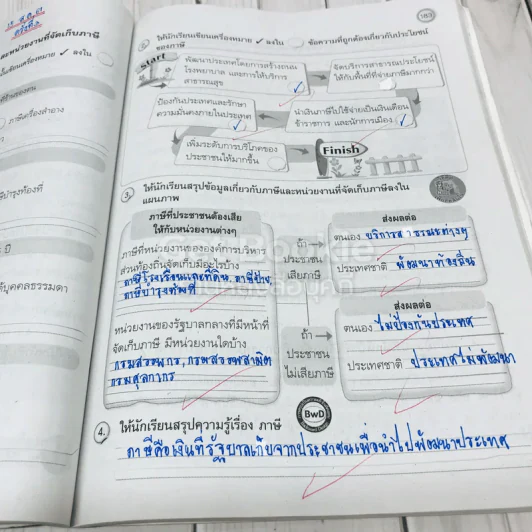 183
2. ให้นักเรียนเขียนเครื่องหมาย ✓ ลงใน ข้อความที่ถูกต้องเกี่ยวกับประโยชน์
ของภาษี
Start
พัฒนาประเทศโดยการสร้างถนน
โรงพยาบาล และการให้บริการ
สาธารณสุข ✓
จัดบริการสาธารณประโยชน์
ให้กับพื้นที่ที่จ่ายภาษีมากกว่า
ป้องกันประเทศและรักษา
ความมั่นคงภายในประเทศ ✓
นำเงินภาษีไปใช้จ่ายเป็นเงินเดือน
ข้าราชการ และนักการเมือง ✓
เพิ่มระดับการบริโภคของ
ประชาชนให้มากขึ้น
Finish
3. ให้นักเรียนสรุปข้อมูลเกี่ยวกับภาษีและหน่วยงานที่จัดเก็บภาษีลงใน
แผนภาพ
ภาษีที่ประชาชนต้องเสีย
ให้กับหน่วยงานต่างๆ
ภาษีที่หน่วยงานขององค์การบริหาร
ส่วนท้องถิ่นจัดเก็บมีอะไรบ้าง
ภาษีโรงเรือนและที่ดิน, ภาษีป้าย
ภาษีบำรุงท้องที่
หน่วยงานของรัฐบาลกลางที่มีหน้าที่
จัดเก็บภาษี มีหน่วยงานใดบ้าง
กรมสรรพากร, กรมสรรพสามิต
กรมศุลกากร
ถ้า
ประชาชน
เสียภาษี
ส่งผลต่อ
ตนเอง บริการสาธารณะต่างๆ
ประเทศชาติ พัฒนาท้องถิ่น
ถ้า
ประชาชน
ไม่เสียภาษี
ส่งผลต่อ
ตนเอง ไม่ป้องกันประเทศ
ประเทศชาติ ประเทศไม่พัฒนา
BwD
4. ให้นักเรียนสรุปความรู้เรื่อง ภาษี
ภาษีคือเงินที่รัฐบาลเก็บจากประชาชนเพื่อนำไปพัฒนาประเทศ
และหน่วยงานที่จัดเก็บภาษี
ลงใน
ภาษีเครื่องสำอาง
บำรุงท้องที่
บุคคลธรรมดา